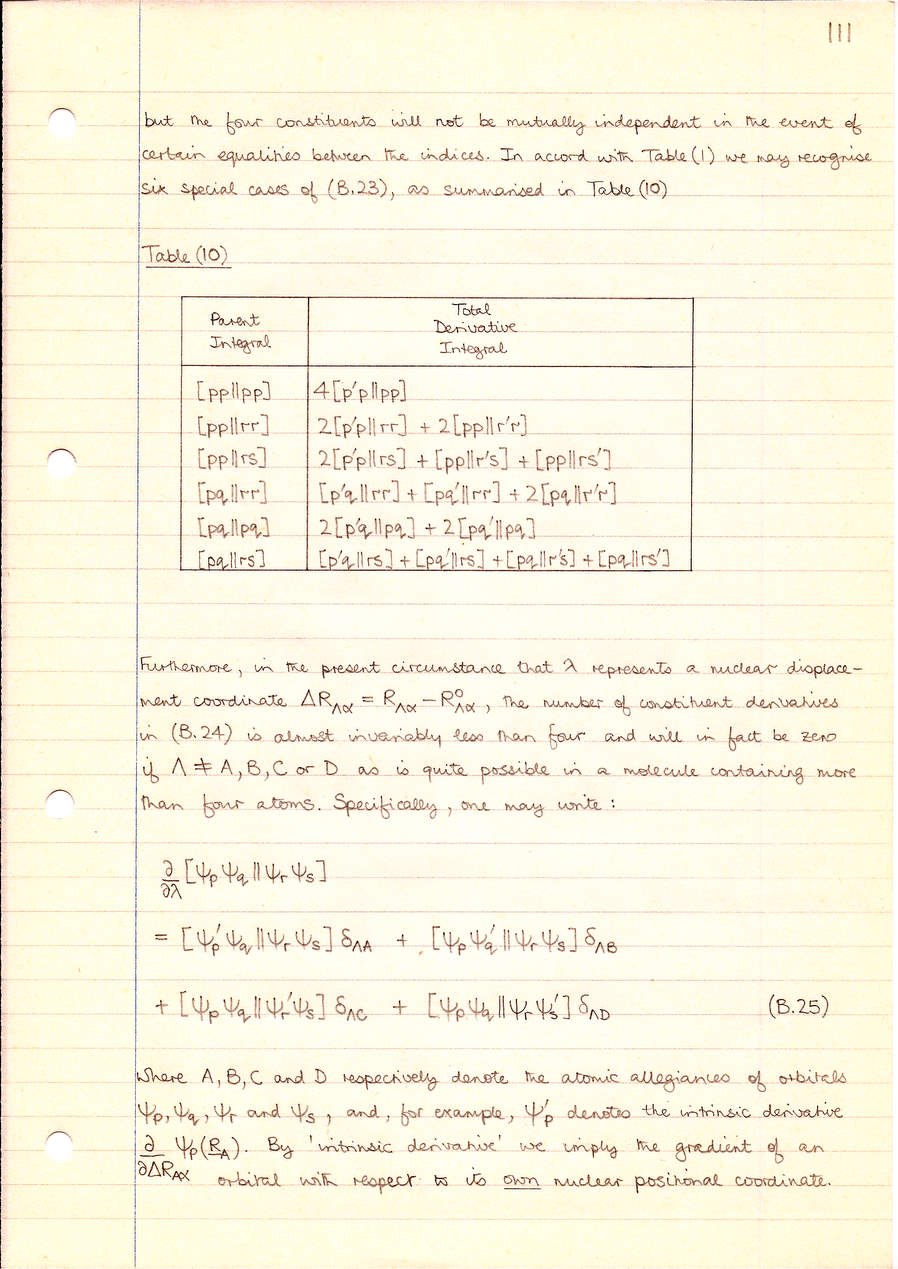 111
but the four constituents will not be mutually independent in the event of
certain equalities between the indices. In accord with Table (1) we may recognise
six special cases of (B.23), as summarised in Table (10)
Table (10)
Parent
Integral
Total
Derivative
Integral
[pp||pp] 4[p′p||pp]
[pp||rr] 2[p′p||rr] + 2[pp||r′r]
[pp||rs] 2[p′p||rs] + [pp||r′s] + [pp||rs′]
[pq||rr] [p′q||rr] + [pq′||rr] + 2[pq||r′r]
[pq||pq] 2[p′q||pq] + 2[pq′||pq]
[pq||rs] [p′q||rs] + [pq′||rs] + [pq||r′s] + [pq||rs′]
Furthermore, in the present circumstance that λ represents a nuclear displace-
ment coordinate ΔR_Λα = R_Λα − R°_Λα, the number of constituent derivatives
in (B.24) is almost invariably less than four and will in fact be zero
if Λ ≠ A, B, C or D as is quite possible in a molecule containing more
than four atoms. Specifically, one may write :
∂/∂λ [Ψp Ψq || Ψr Ψs]
= [Ψp′ Ψq || Ψr Ψs] δ_ΛA + [Ψp Ψq′ || Ψr Ψs] δ_ΛB
+ [Ψp Ψq || Ψr′ Ψs] δ_ΛC + [Ψp Ψq || Ψr Ψs′] δ_ΛD (B.25)
where A, B, C and D respectively denote the atomic allegiances of orbitals
Ψp, Ψq, Ψr and Ψs, and, for example, Ψ′p denotes the intrinsic derivative
∂/∂ΔR_Aα Ψp(R_A). By 'intrinsic derivative' we imply the gradient of an
orbital with respect to its own nuclear positional coordinate.